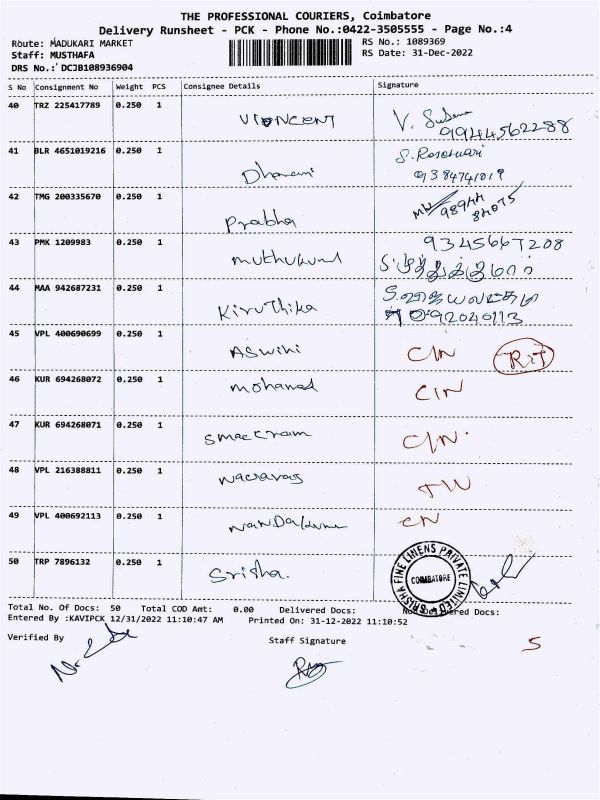 THE PROFESSIONAL COURIERS, Coimbatore
Delivery Runsheet - PCK - Phone No.:0422-3505555 - Page No.:4
Route: MADUKARI MARKET
RS No.: 1089369
Staff: MUSTHAFA
RS Date: 31-Dec-2022
DRS No.: DCJB108936904
S No Consignment No Weight PCS Consignee Details Signature
40 TRZ 225417789 0.250 1 V. 9944562288
41 BLR 4651019216 0.250 1 S. 9384741019
42 TMG 200335670 0.250 1 Prabha 98944 84075
43 PMK 1209983 0.250 1 9345667208
S.முத்துக்குமார்
44 MAA 942687231 0.250 1 Kiruthika
45 VPL 400690699 0.250 1 Aswini C/N
46 KUR 694268072 0.250 1 C/N
47 KUR 694268071 0.250 1 C/N.
48 VPL 216388811 0.250 1
49 VPL 400692113 0.250 1
50 TRP 7896132 0.250 1 Srisha.
SRISHA FINE LINENS PRIVATE LIMITED
COIMBATORE
Total No. Of Docs: 50 Total COD Amt: 0.00 Delivered Docs: Not Delivered Docs:
Entered By :KAVIPCK 12/31/2022 11:10:47 AM Printed On: 31-12-2022 11:10:52
Verified By Staff Signature
5